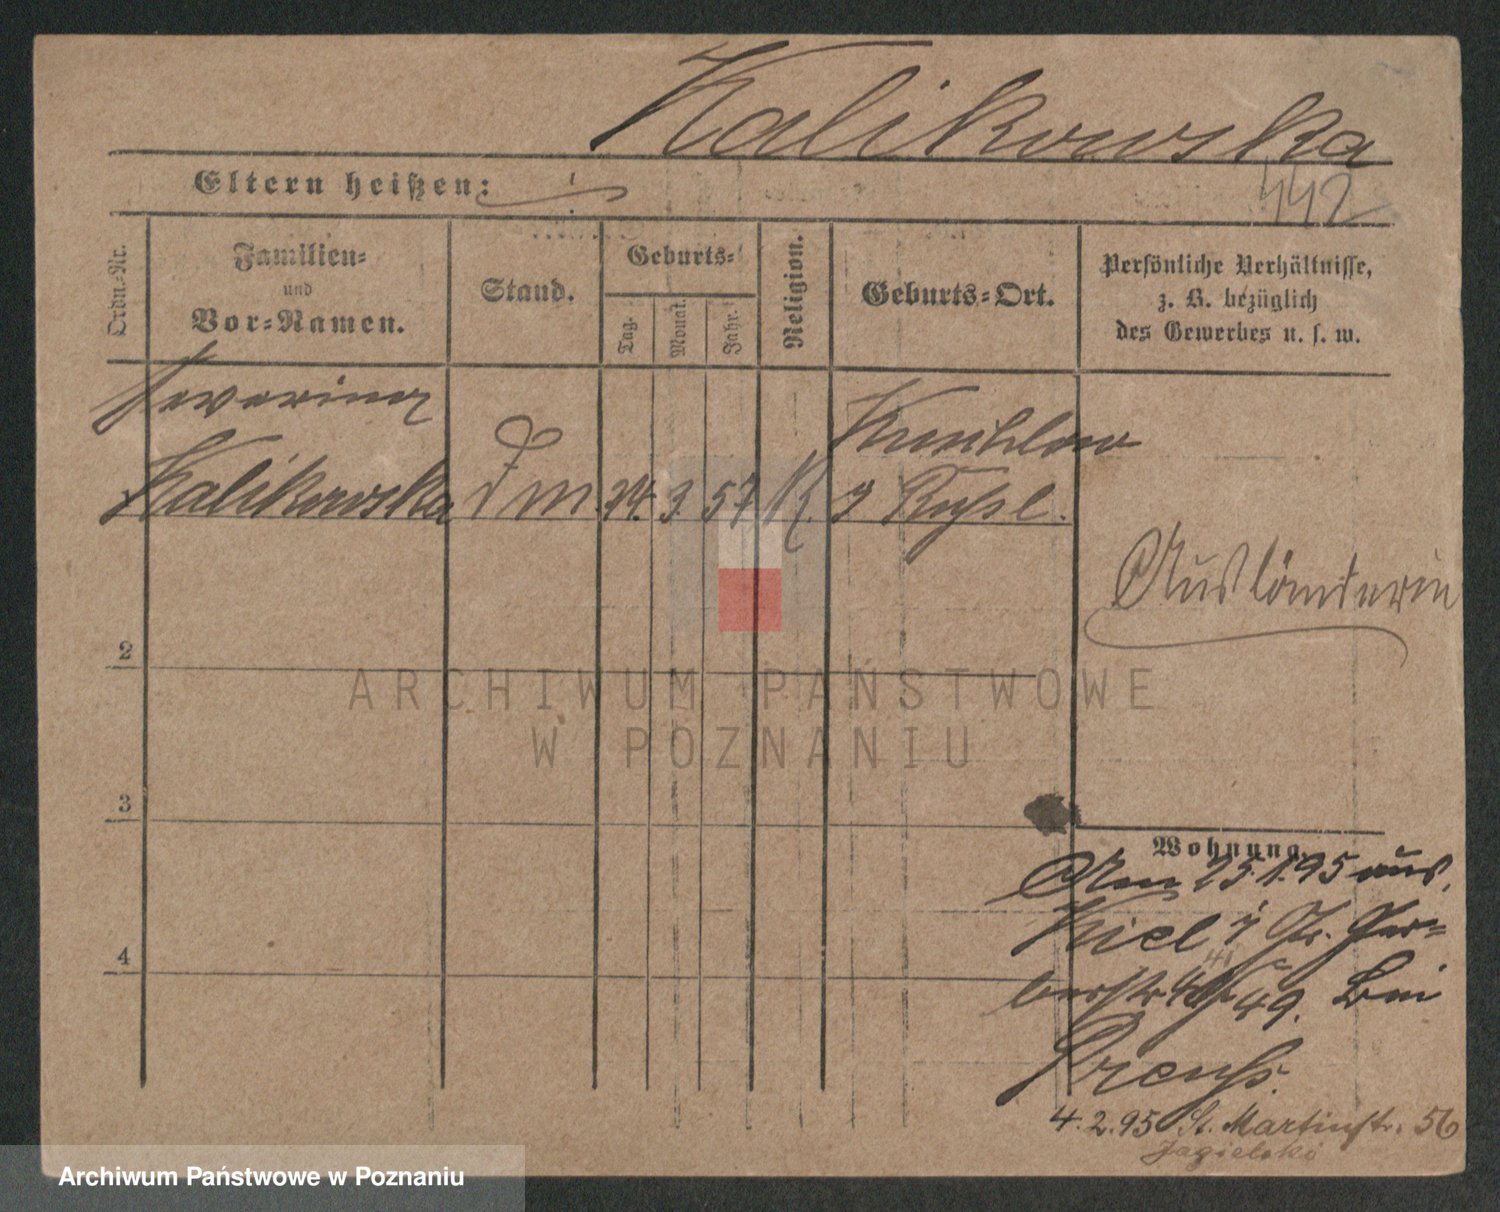 Kalikowska
Eltern heißen:
442
Ordn.-Nr.
Familien-
und
Vor-Namen.
Stand.
Geburts-
Tag.
Monat.
Jahr.
Religion.
Geburts-Ort.
Persönliche Verhältnisse,
z. B. bezüglich
des Gewerbes u. s. w.
Severina
Kalikowska
24. 3. 57 K.
Ausländerin
2
3
4
ARCHIWUM PAŃSTWOWE
W POZNANIU
Wohnung.
Am 25.1.95 aus
Kiel Gr. Ger-
berstr 49. bei
Preuß.
4.2.95 St. Martinstr. 56
Jagielski
Archiwum Państwowe w Poznaniu